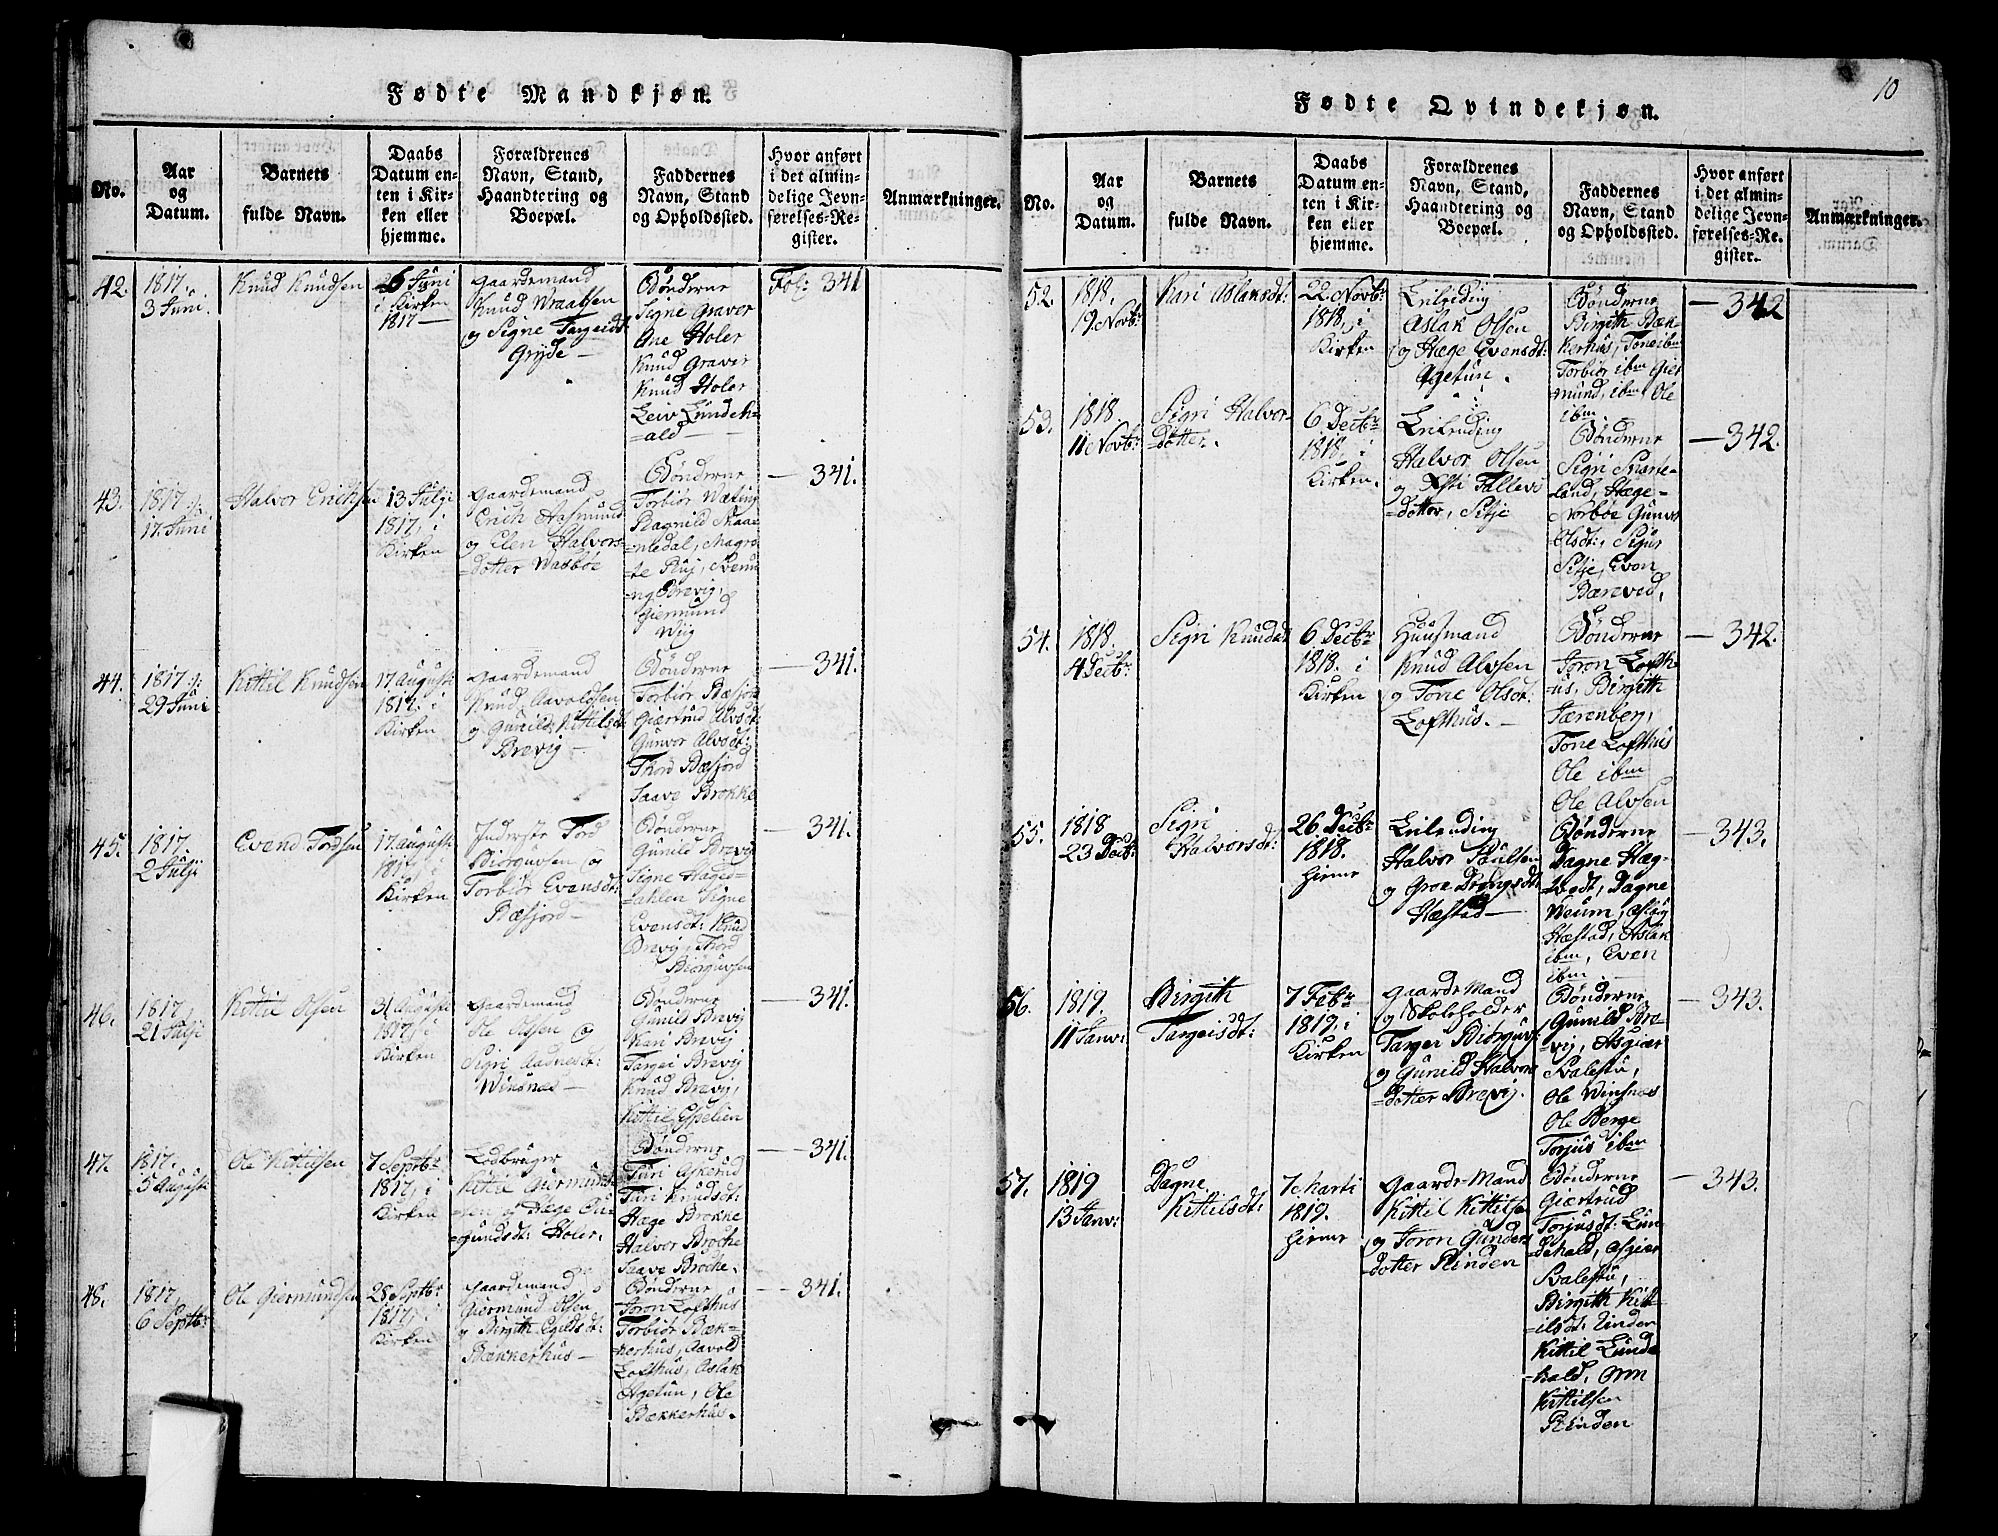 10
Fødte Mandkjøn.
No.
Aar
og
Datum.
Barnets
fulde Navn.
Daabs
Datum en-
ten i Kir-
ken eller
hjemme.
Forældrenes
Navn, Stand,
Haandtering og
Boepæl.
Faddernes
Navn, Stand
og Opholdssted.
Hvor anført
i det almin-
delige Jevn-
førelses-Re-
gister.
Anmærkninger.
42.
1817.
3 Juni.
Knud Knudsen
6 Juni
i Kirken
1817 —
Gaardemand
Knud Wraalsen
og Signe Targeidt
Gryde —
Bønderne
Signe Graver
Ane Holer
Knud Graver
Knud Holer
Lew Lundeh-
=ald —
Fol: 341
43.
1817 :/:
17. Juni
Halvor Erichsen
13 Julji
1817, i
Kirken
Gaardemand
Erich Aasmund
og Elen Halvors-
=dotter Wasbøe
Bønderne
Torbiør
Ragnild Skaar
=medal, Magre
=te Ruj, Svenu
=ng Brevig,
Giermund
Wiig
— 341.
44.
1817 :/:
29 Juni
Kittil Knudsen
17 August:
1817. i
Kirken
Gaardemand
Knud Aavoldsen
og Gunild Kittilsdt:
Brevig —
Bønderne
Torbiør Bæsjord
Giærtrud Alvsdt:
Gunvor Alvsdt:
Thord Bæsjord
Saave Brokke
— 341.
45.
1817.
2 Julji
Evend Tordsen
17 August:
1817, i
Kirken
Inderste Tord
Biørguvsen og
Torbiør Evensdt:
Bæsjord —
Bønderne
Gunild Brevij
Signe Hages=
=dahlen Signe
Evensdt: Knud
Brevij, Thord
Biørguvsen
— 341.
46.
1817,
21 Julji
Kittil Olsen
31 August:
1817, i
Kirken
Gaardemand
Ole Olsen og
Sigri Aadnesdt:
Winsnæs —
Bønderne
Gunild Brevij
Kari Brevij
Targei Brevij
Knud Brevij,
Kittil Espelien
— 341.
47.
1817.
5 August:
Ole Kittilsen
7 Septbr
1817, i
Kirken
Lodbruger
Kittil Giermund-
=sen og Hæge Au-
=gundsdt: Holer.
Bønderne
Turi Askerud
Turi Knudsdt:
Hæge Brokke
Halvor Broche
Saave Broche.
— 341.
48.
1817,
6 Septb:
Ole Giermundsen
28 Septbr
1817, i
Kirken
Gaardemand
Giermund Olsen
og Birgith Egildsdt:
Bækkerhus —
Bønderne
Joron Lofthus
Torbiør Bæk=
=kerhus, Aavold
Lofthus, Aslak
Agetun, Ole
Bækkerhus.
— 341.
Fødte Qvindekjøn.
No.
Aar
og
Datum.
Barnets
fulde Navn.
Daabs
Datum en-
ten i Kir-
ken eller
hjemme.
Forældrenes
Navn, Stand,
Haandtering og
Boepæl.
Faddernes
Navn, Stand
og Opholdssted.
Hvor anført
i det almin-
delige Jevn-
førelses-Re-
gister.
Anmærkninger.
52.
1818.
19. Novb:
Kari Aslaksdt:
22. Novb:
1818, i
Kirken
Leilending
Aslak Olsen
og Hæge Evensdt:
Agetun.
Bønderne
Birgith Bæk-
kerhus, Tone ibm
Torbiør ibm Gier
mund, ibm Ole
ibm.
— 342
53.
1818.
11 Novb:
Sigri Halvor-
=dotter.
6 Decbr
1818, i
Kirken.
Leilending
Halvor Olsen
og Tallevs
=dotter, Sitje
Bønderne
Sigri Svarte-
land, Hæge
Norbøe Gunvor
Olsdt:, Sigur
Sitje, Even
Bæreved,
— 342.
54.
1818,
4 Decb:
Sigri Knudsdt
6 Decbr
1818. i
Kirken
Huusmand
Knud Alvsen
og Tone Olsdt:
Lofthus. —
Bønderne
Joron Lofth-
us, Birgith
Jærenberg,
Tone Lofthus
Ole ibm
Ole Alvsen
— 342.
55.
1818
23 Decb:
Sigri
Halvorsdt:
26 Decbr
1818.
Hieme
Leilending
Halvor Paulsen
og Groe Drongsdt:
Hæstad —
Bønderne
Dagne Hæg-
=vodt, Dagne
Weum, Aslaug
Hæstad, Aslak
ibm, Even
ibm
— 343.
56.
1819.
11 Janv:
Birgith
Targeisdt:
7 Febr
1819, i
Kirken
Gaarde Mand
og Skoleholder
Targei Biørguvs:
og Gunild Halvors
=dotter Brevij.
Bønderne
Gunild Bre=
=vij, Asgier
Svalestu,
Ole Winsnæs
Ole Berge
Torjus ibm
— 343.
57.
1819
13 Janv:
Dagne
Kittilsdt:
7 Marti
1819.
Hieme
Gaarde-Mand
Kittil Kittilse
og Joron Gunders
dotter Rinden
Bønderne
Giærtrud
Torjusdt: Lun-
dehald, Asgier
Svalestu,
Birgith Kitt=
=ilsdt: Rinden
Kittil Lunde
hald,
Kittilsen
Rinden
— 343.